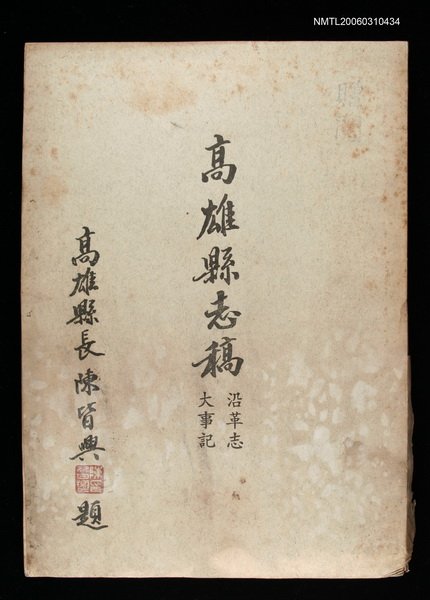 NMTL20060310434
高雄縣志稿
沿革志
大事記
高雄縣長陳皆興題